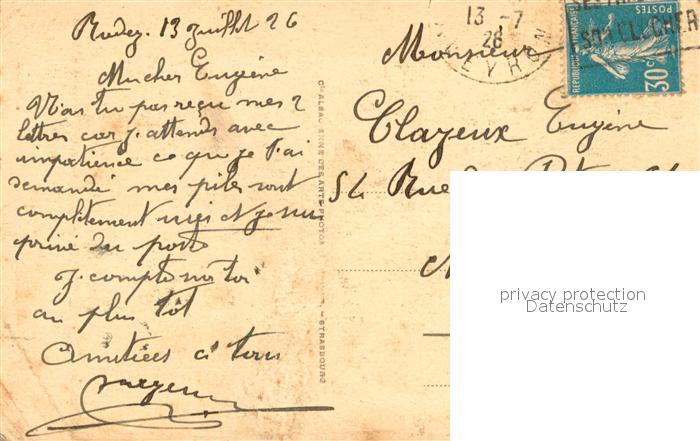 Rodez. 13 Juillet 26
Mon cher Eugène
N'as tu pas reçu mes 2
lettres car j. attends avec
impatience ce que je t'ai
demandé mes piles sont
complètement usés et je suis
privé du poste
J. compte sur toi
au plus tôt
Amitiées à tous
Monsieur
Clazeux Eugène
54 Rue
13 - 7
26
AVEYRON
POSTES
REPUBLIQUE FRANÇAISE
30c
CIE ALSACIENNE DES ARTS PHOTO
STRASBOURG
privacy protection
Datenschutz